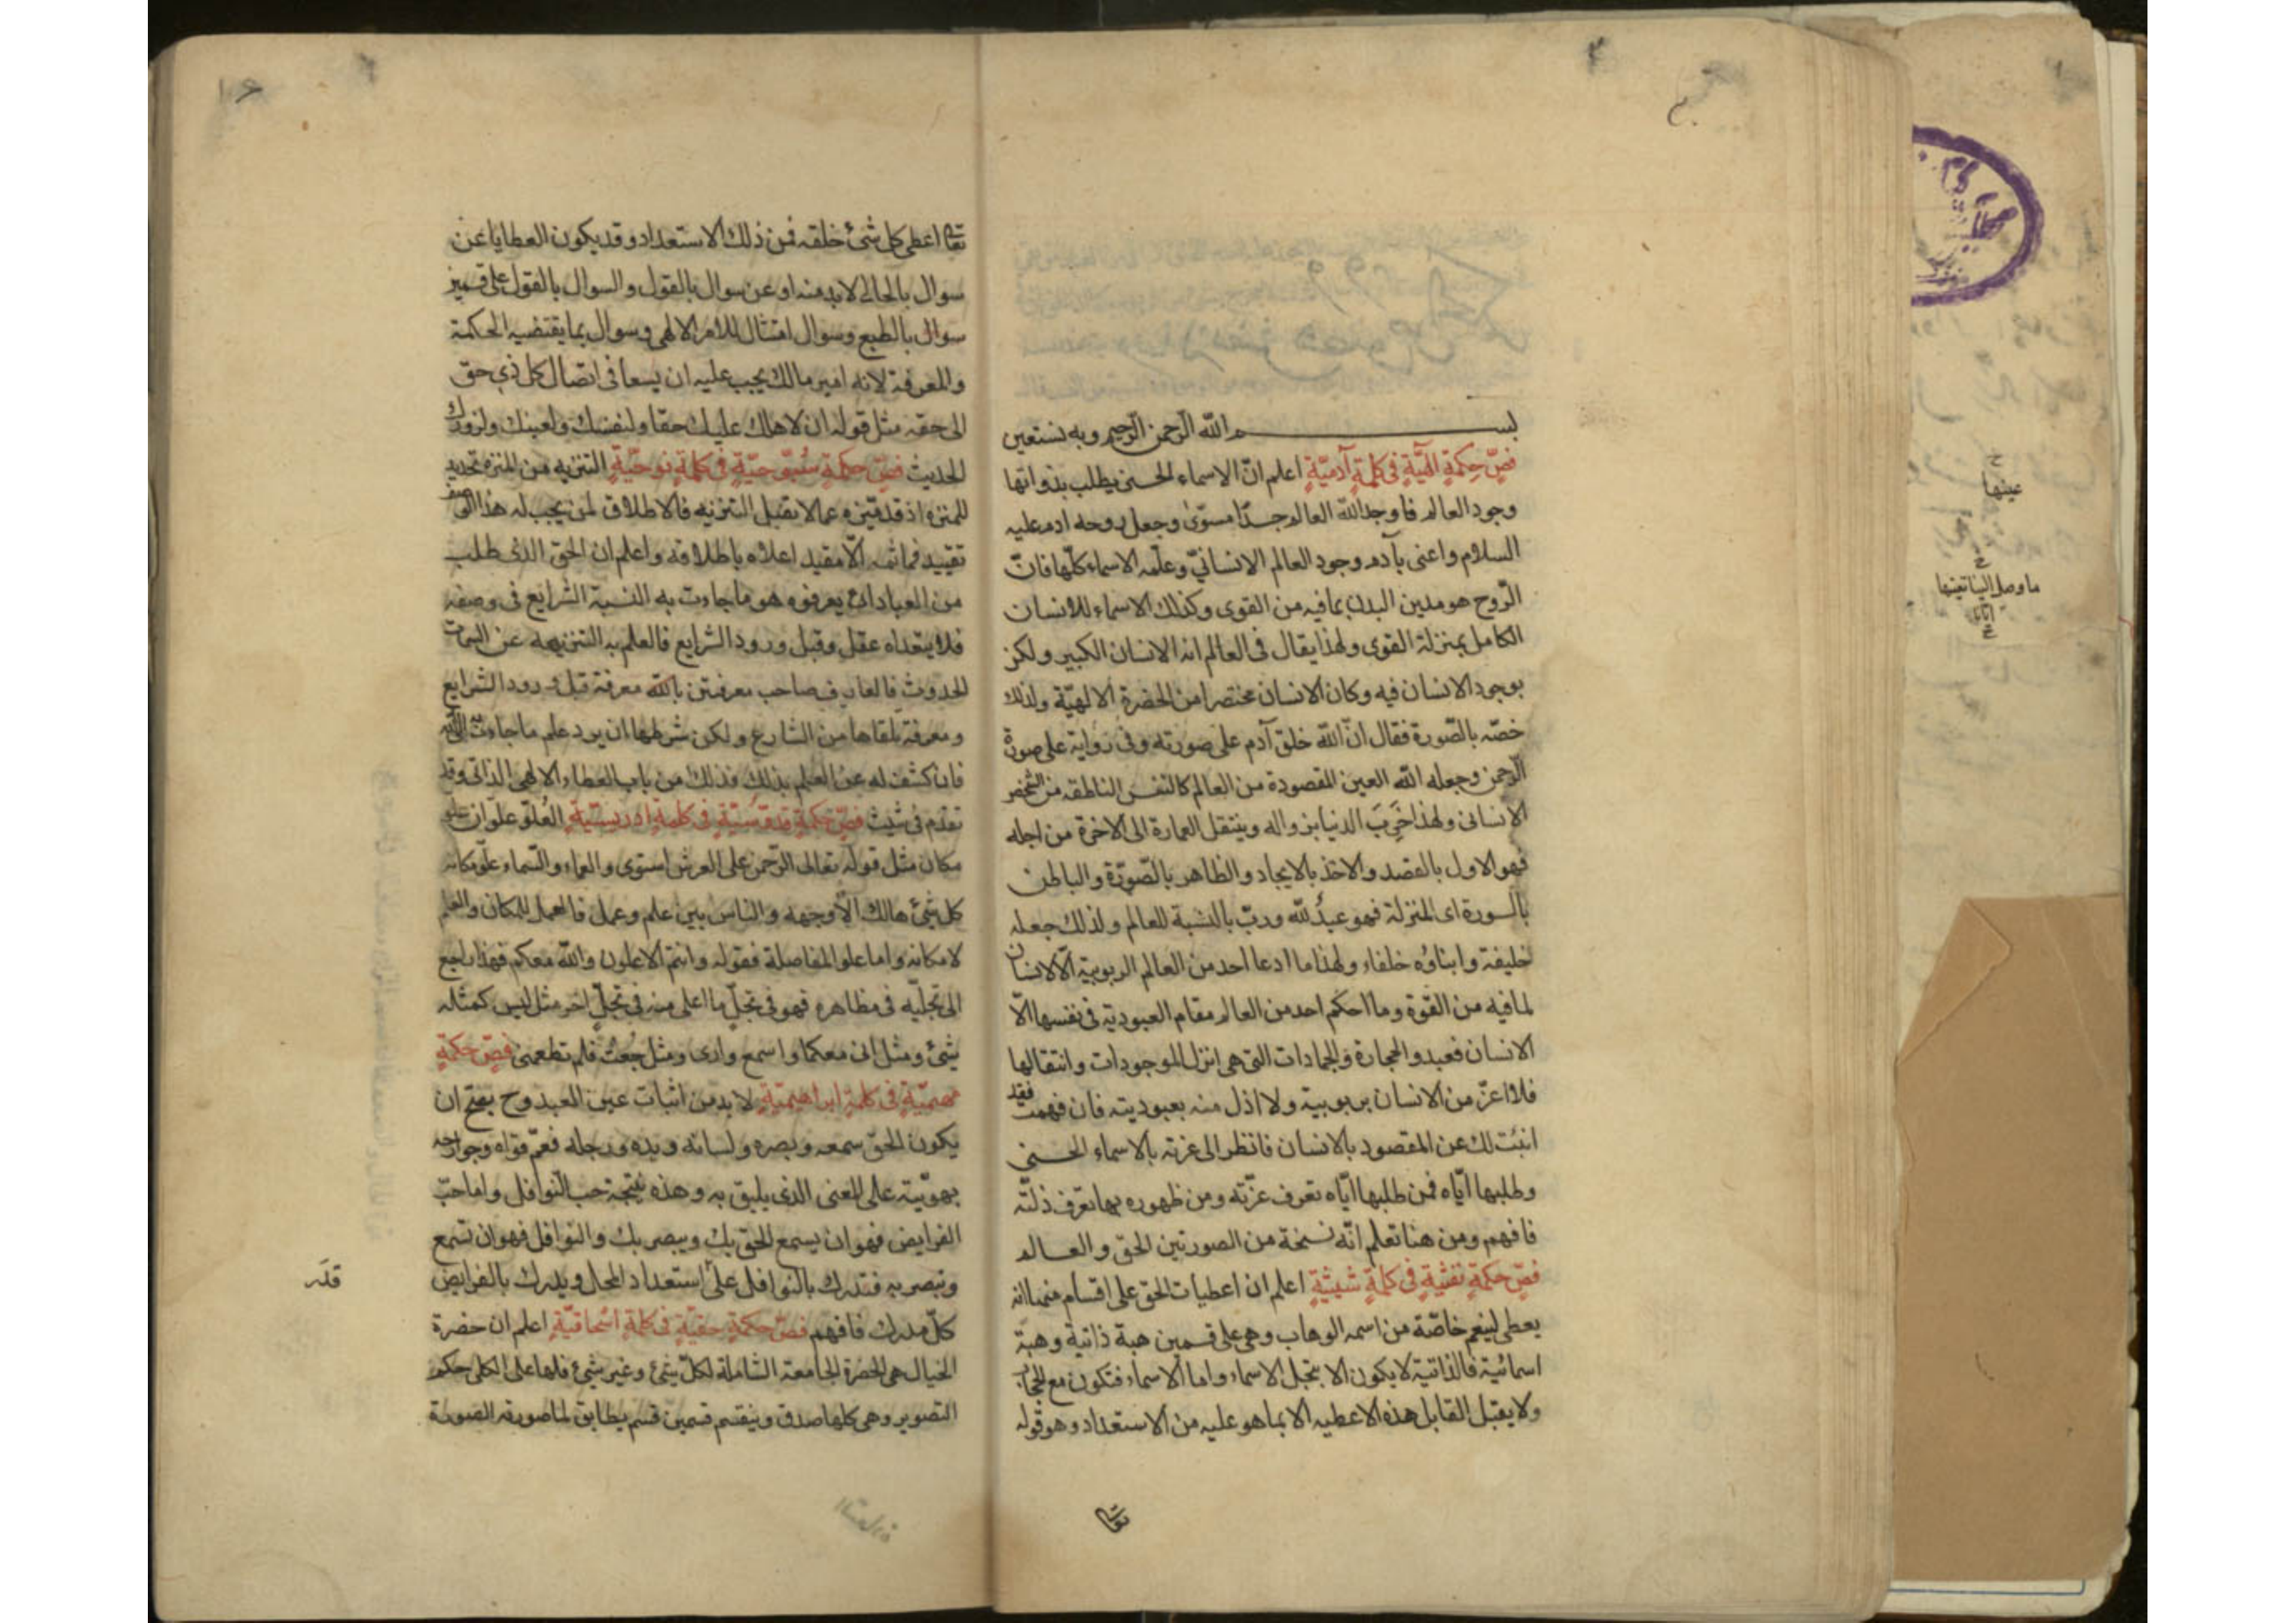 بسم الله الرحمن الرحيم وبه نستعين
فصّ حكمةٍ الهيّةٍ فى كلمةٍ آدميّةٍ اعلم انّ الاسماء الحسنى يطلب بذواتها
وجود العالم فاوجد الله العالم جسدًا مسوّى وجعل روحه ادم عليه
السلام واعنى بآدم وجود العالم الانسانيّ وعلّمه الاسماء كلّها فانّ
الرّوح هو مدبن البدن بما فيه من القوى وكذلك الاسماء للانسان
الكامل بمنزلة القوى ولهذا يقال فى العالم انه الانسان الكبير ولكن
بوجود الانسان فيه وكان الانسان مختصرا من الحضرة الالهيّة ولذلك
خصّه بالصّورة فقال انّ الله خلق آدم على صورته وفى رواية على صورة
الرّحمن وجعله الله العين المقصودة من العالم كالنفس الناطقه من الشخص
الانسانى ولهذا خَرِبَ الدنيا بزواله وينتقل العمارة الى الاخرة من اجله
فهو الاول بالقصد والاخذ بالايجاد والظاهر بالصّورة والباطن
بالسورة اى المنزلة فهو عبدٌ لله وربّ بالنسبة للعالم ولذلك جعله
خليفة وابناؤه خلفاء ولهذا ما ادعا احد من العالم الربوبية الّا الانسان
لما فيه من القوة وما احكم احد من العالم مقام العبودية فى نفسها الّا
الانسان فعبدوا الحجارة والجمادات التى هى انزل الموجودات وانتقالها
فلا اعزّ من الانسان بربوبية ولا اذل منه بعبوديته فان فهمت فقد
انبئت لك عن المقصود بالانسان فانظر الى عزته بالاسماء الحسنى
وطلبها ايّاه فمن طلبها ايّاه تعرف عزّته ومن ظهوره بها تعرف ذلّته
فافهم ومن هنا تعلم انّه نسخة من الصورتين الحقّ والعالم
فصّ حكمةٍ نفثيةٍ فى كلمةٍ شيثيّةٍ اعلم ان اعطيات الحق على اقسام منها انه
يعطى لينعم خاصّة من اسمه الوهاب وهى على قسمين هبة ذاتية وهبة
اسمائية فالذاتية لا يكون الا بتجلى الاسماء واما الاسماء فتكون مع الحجاب
ولا يقبل القابل هذه الاعطيه الا بما هو عليه من الاستعداد وهو قوله
تعالى
تعالى اعطى كل شئ خلقه فمن ذلك الاستعداد وقد يكون العطايا عن
سوال بالحال لا بد منه او عن سوال بالقول والسوال بالقول على قسمين
سوال بالطبع وسوال امتثال للامر الالهى وسوال بما يقتضيه الحكمة
والمعرفة لانه امير مالك يجب عليه ان يسعا فى ايصال كل ذى حق
الى حقه مثل قوله ان لاهلك عليك حقا ولنفسك ولعينك ولزورك
الحديث فصّ حكمةٍ سُبّوحيّةٍ فى كلمةٍ نوحيّةٍ التنزيه من المنزه تحديد
للمنزه اذ قد ميّزه عما لا يقبل التنزيه فالاطلاق لمن يجب له هذا الوصف
تقييد فما ثمه الّا مقيد اعلاه باطلاقه واعلم ان الحق الذى طلب
من العباد ان يعرفوه هو ما جاءت به السنة الشرايع فى وصفه
فلا يتعداه عقل وقبل ورود الشرايع فالعلم به التنزيهه عن السمات
الحدوث فالعارف صاحب معرفتين بالله معرفة قبل ورود الشرايع
ومعرفة تلقاها من الشارع ولكن شرطها ان يرد علم ما جاءت به الى الله
فان كشف له عن العلم بذلك فذلك من باب العطاء الالهى الذاتى وقد
تقدم فى شيث فصّ حكمةٍ قدّوسيّةٍ فى كلمةٍ ادريسيّةٍ العُلوّ علوّان علو
مكان مثل قوله تعالى الرّحمن على العرش استوى والعماء والسّماء علوّ مكانه
كل شئ هالك الّا وجهه والناس بين علم وعمل فالعمل للمكان والعلم
لامكانه واما علو المفاضلة فقوله وانتم الاعلون والله معكم فهذا راجع
الى تجلّيه فى مظاهره فهو فى تجلّ ما اعلى منه فى تجلّ اخر مثل ليس كمثله
شئ ومثل انى معكما واسمع وارى ومثل جُعتُ فلم تطعمنى فصّ حكمةٍ
مهيميّةٍ فى كلمةٍ ابراهيميّةٍ لا بد من اثبات عين العبد وح يصح ان
يكون الحقّ سمعه وبصره ولسانه ويده ورجله فعمّ قواه وجوارحه
بهويّته على المعنى الذى يليق به وهذه نتيجة حب النّوافل واما حبّ
الفرايض فهو ان يسمع الحق بك ويبصر بك والنوافل فهو ان تسمع
وتبصر به فتدرك بالنوافل على استعداد المحل ويدرك بالفرايض
قدر
كلّ مدرك فافهم فصّ حكمةٍ حقيّةٍ فى كلمةٍ اسْحاقيّةٍ اعلم ان حضرة
الخيال هى الحضرة الجامعة الشاملة لكلّ شئ وغير شئ فلها على الكل حكم
التصوير وهى كلها صدق وينقسم قسمين قسم يطابق لما صورته الصورة
عينها